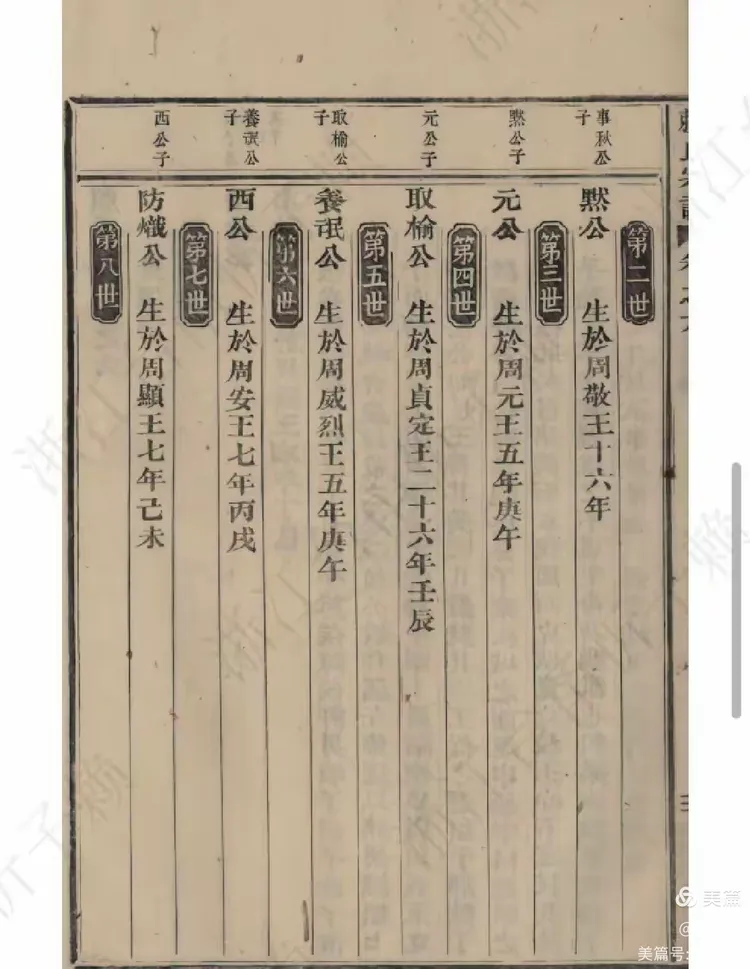 第二世
事秋公子
默公 生於周敬王十六年
第三世
默公子
元公 生於周元王五年庚午
第四世
元公子
取榆公 生於周貞定王二十六年壬辰
第五世
取榆公子
養 公 生於周威烈王五年庚午
第六世
養 公子
西公 生於周安王七年丙戌
第七世
西公子
防熾公 生於周顯王七年己未
第八世
美篇
@
美篇号: